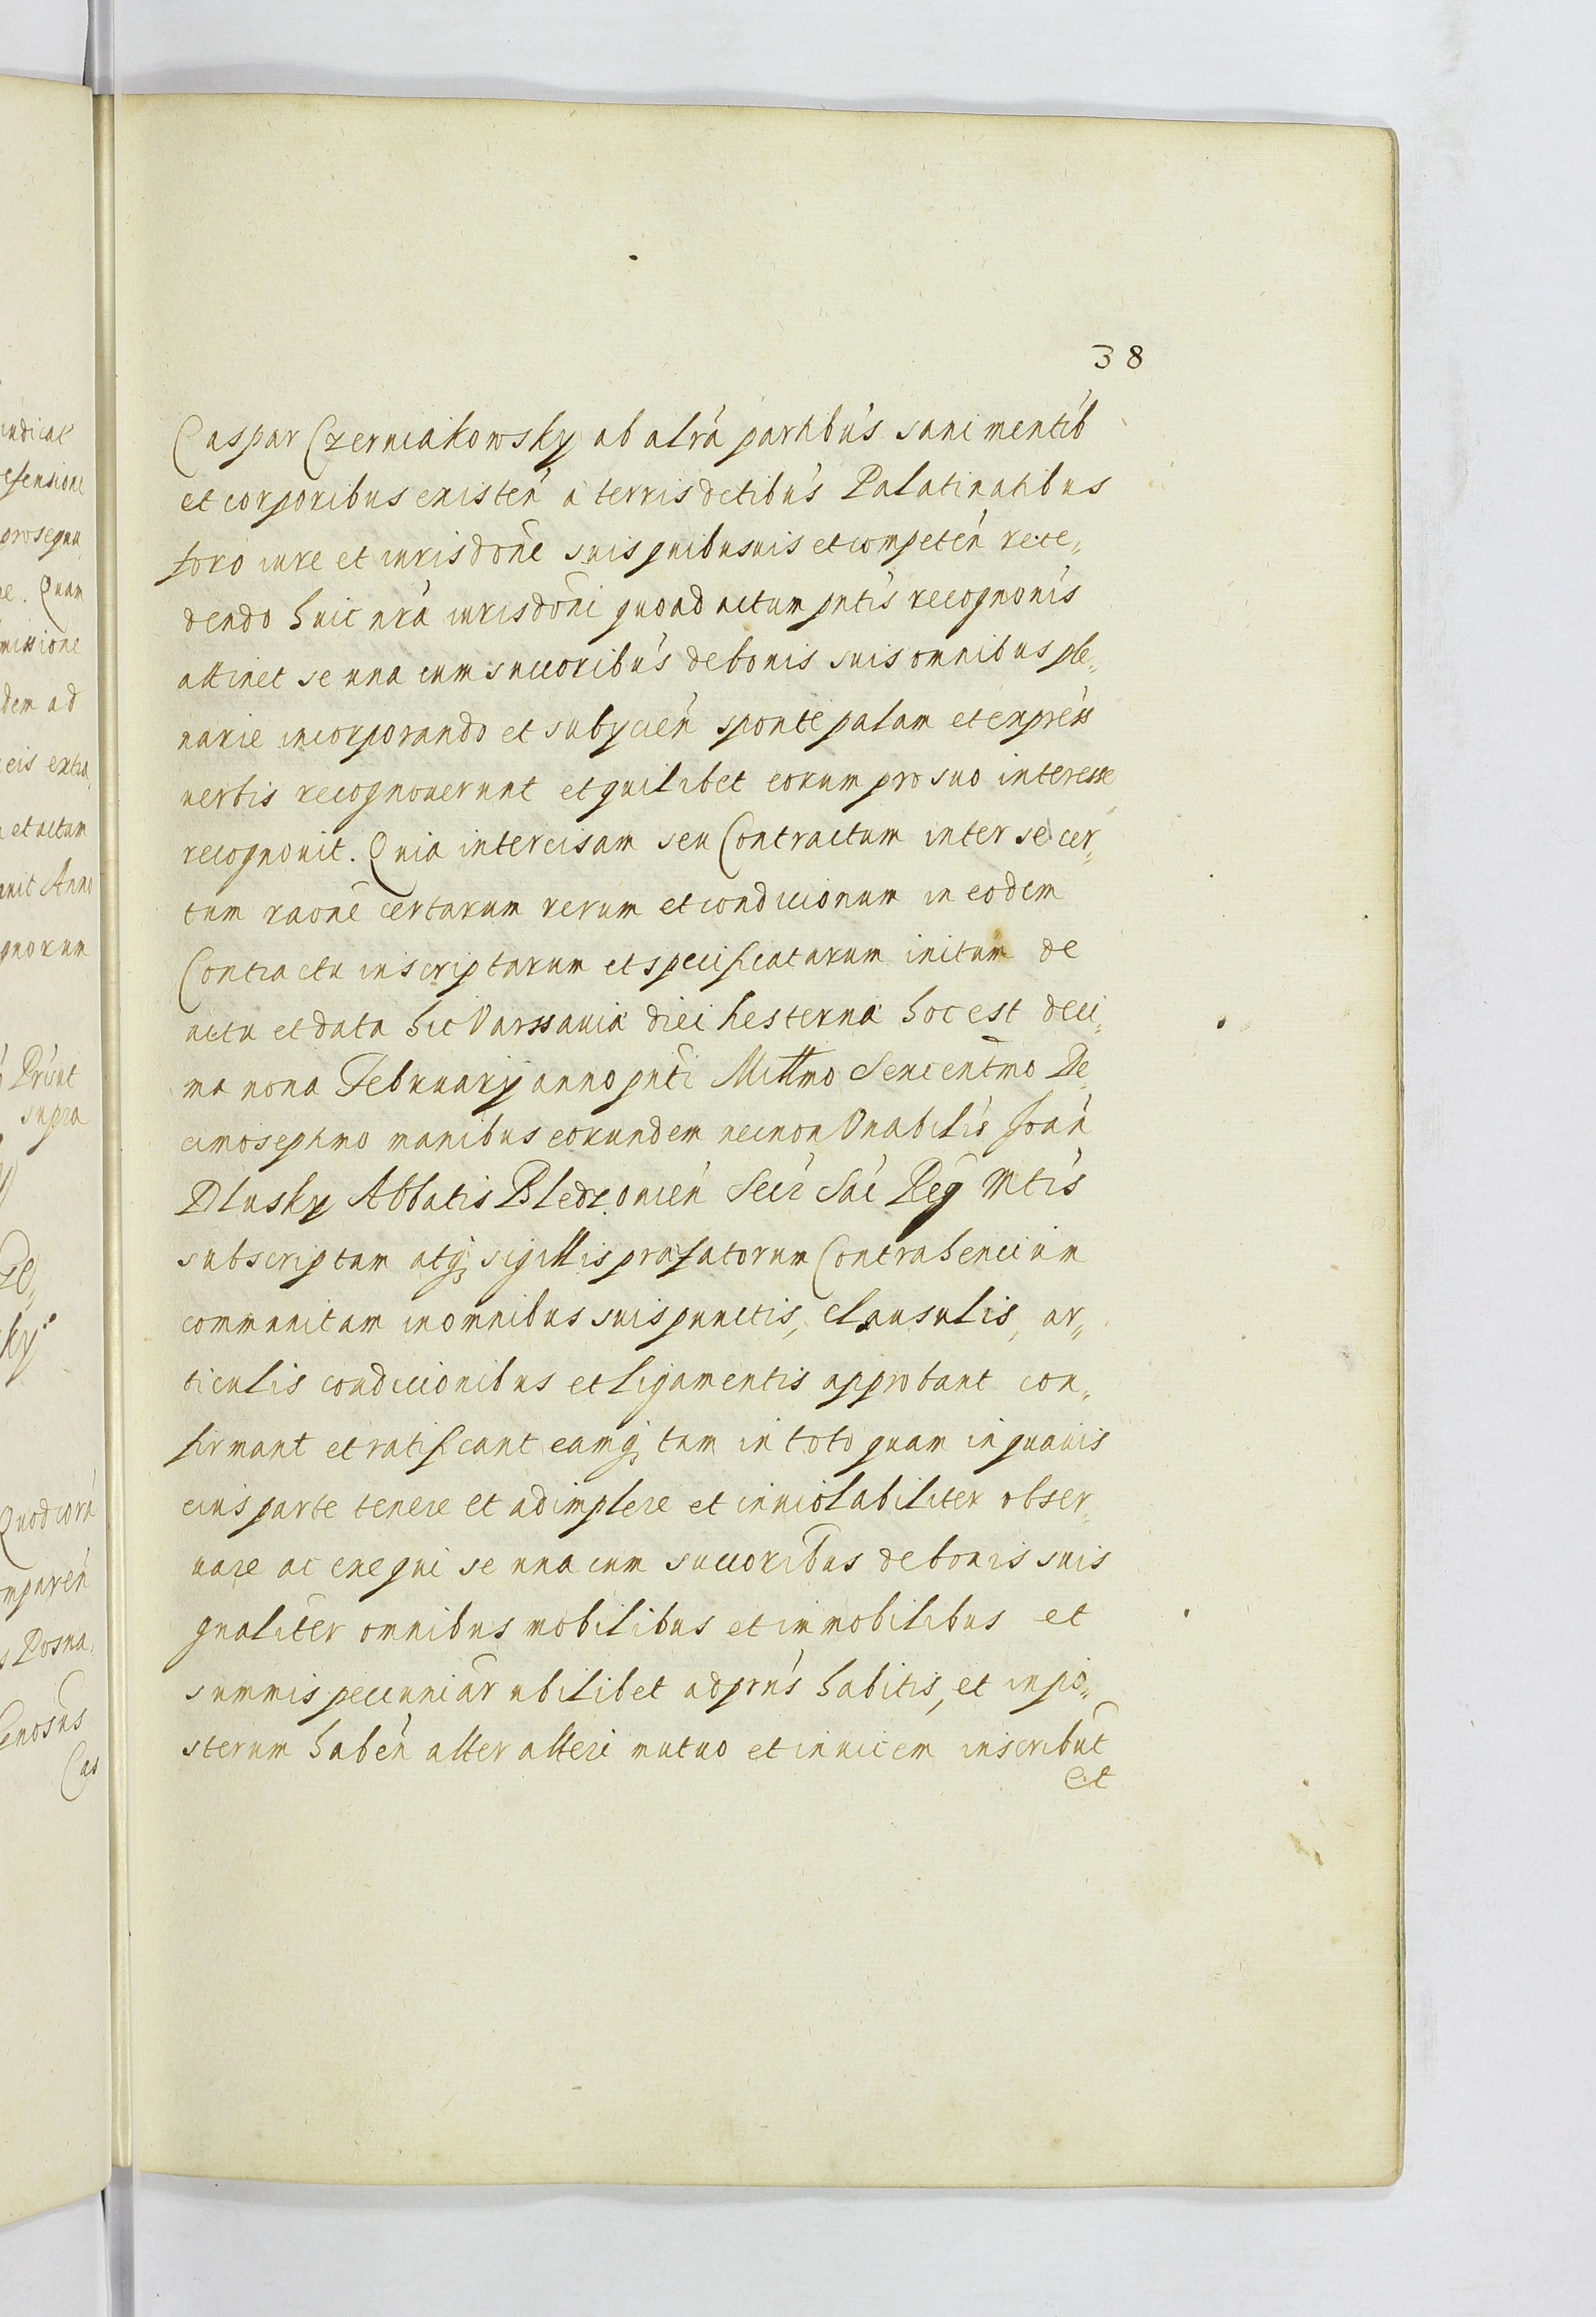 38
Caspar Czerniakowsky ab alr̃a partibus sani mentib
et corporibus existeń a terris dctibus Palatinatibus
foro iure et iurisdõne suis quibusuis et competeń rece„
dendo huic nr̃a iurisdõni quoad actum pñtis recognonis
attinet se una cum succoribus de bonis suis omnibus ple„
narie incorporando et subycień sponte palam et expręss
verbis recognouerunt et quilibet eorum pro suo interesse
recognouit. Quia intercisam seu Contractum inter se cer„
tum raone certarum rerum et condicionum in eodem
Contractu inscriptarum et specificatarum initum de
actu et data hic Varssauiæ diei hesternæ hoc est deci„
ma nona February anno pñti Millmo Sexcentmo De„
cimoseptmo manibus eorundem necnon Vnabilis Joań
Dlusky Abbatis Bledzouień Secr̃ Sac̃ Reg̃ Mtis
subscriptam atq; sigillis præfatorum Contrahencium
communitam in omnibus suis punctis, clausulis, ar„
ticulis condicionibus et ligamentis approbant con„
firmant et ratificant eamq; tam in toto quam in quauis
eius parte tenere et adimplere et inuiolabiliter obser„
uare ac exequi se una cum succoribus de bonis suis
gnaliter omnibus mobilibus et immobilibus et
summis pecuniar̃ ubilibet ad pr̃ns habitis, et in po„
sterum habeń alter alteri mutuo et inuicem inscribũt
et
indicat
efensione
prosequu
e. Quam
missione
dem ad
eis extra
et actum
Anno
quorum
supra
Quod corã
mpareń
Posna
Gnosus
Cas